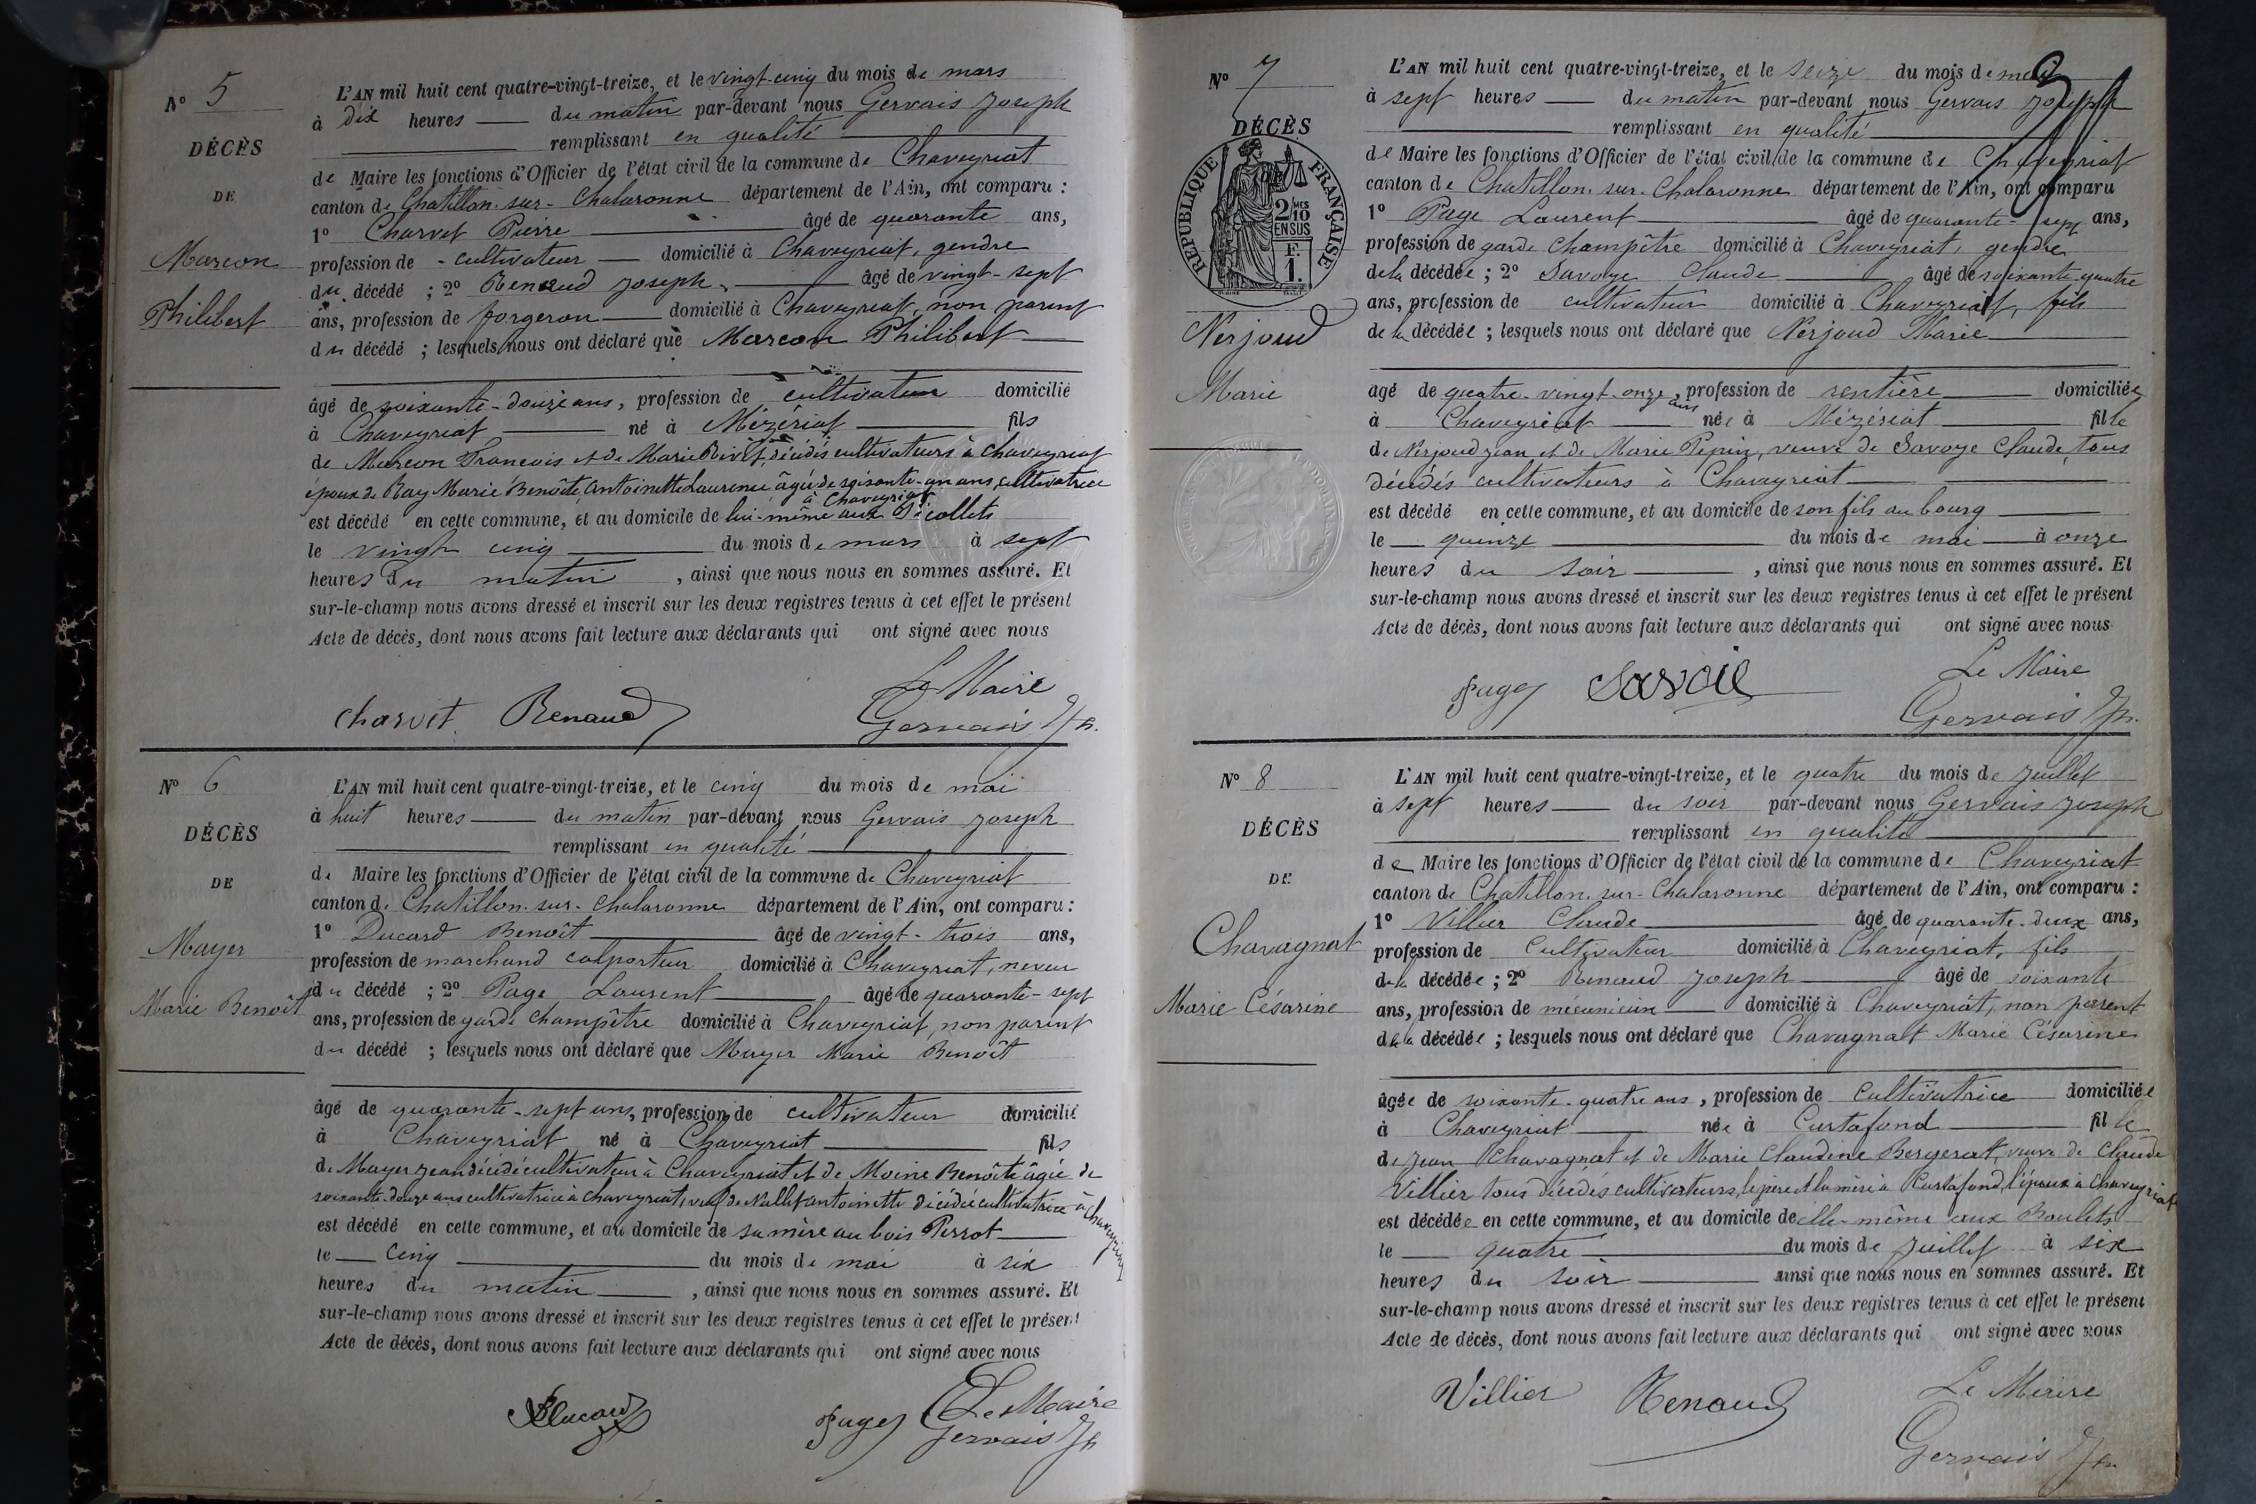 Nº 5
DÉCÈS
DE
Marcon
Philibert
L'AN mil huit cent quatre-vingt-treize, et le vingt-cinq du mois de mars
à dix heures du matin par-devant nous Gervais Joseph
remplissant en qualité
de Maire les fonctions d'Officier de l'état civil de la commune de Chaveyriat
canton de Chatillon-sur-Chalaronne département de l'Ain, ont comparu :
1º Charvet Pierre âgé de quarante ans,
profession de cultivateur domicilié à Chaveyriat, gendre
du décédé ; 2º Renaud Joseph, âgé de vingt-sept
ans, profession de forgeron domicilié à Chaveyriat, non parent
du décédé ; lesquels nous ont déclaré que Marcon Philibert
âgé de soixante-douze ans, profession de cultivateur domicilié
à Chaveyriat né à Mézériat fils
de Marcon François et de Marie Rivet, décédés cultivateurs à Chaveyriat
époux de Ray Marie Benoîte Antoinette Laurence âgée de soixante-un ans, cultivatrice
à Chaveyriat
est décédé en cette commune, et au domicile de lui-même aux
le vingt cinq du mois de mars à sept
heures du matin , ainsi que nous nous en sommes assuré. Et
sur-le-champ nous avons dressé et inscrit sur les deux registres tenus à cet effet le présent
Acte de décès, dont nous avons fait lecture aux déclarants qui ont signé avec nous
Le Maire
Charvet Renaud Gervais Jh.
Nº 6
DÉCÈS
DE
Mayer
Marie Benoît
L'AN mil huit cent quatre-vingt-treize, et le cinq du mois de mai
à huit heures du matin par-devant nous Gervais Joseph
remplissant en qualité
de Maire les fonctions d'Officier de l'état civil de la commune de Chaveyriat
canton de Chatillon-sur-Chalaronne département de l'Ain, ont comparu :
1º Ducard Benoît âgé de vingt-trois ans,
profession de marchand colporteur domicilié à Chaveyriat, neveu
du décédé ; 2º Page Laurent âgé de quarante-sept
ans, profession de garde champêtre domicilié à Chaveyriat, non parent
du décédé ; lesquels nous ont déclaré que Mayer Marie Benoît
âgé de quarante-sept ans, profession de cultivateur domicilié
à Chaveyriat né à Chaveyriat fils
de Mayer Jean décédé cultivateur à Chaveyriat et de Moine Benoîte âgée de
soixante-douze ans cultivatrice à Chaveyriat, veuf de Nallet Antoinette décédée cultivatrice à Chaveyriat
est décédé en cette commune, et au domicile de sa mère au bois Perrot
le cinq du mois de mai à six
heures du matin , ainsi que nous nous en sommes assuré. Et
sur-le-champ nous avons dressé et inscrit sur les deux registres tenus à cet effet le présent
Acte de décès, dont nous avons fait lecture aux déclarants qui ont signé avec nous
Le Maire
BDucard Page Gervais Jh
Nº 7
DÉCÈS
RÉPUBLIQUE FRANÇAISE
2/10 MES
EN SUS
F.
1.
Nerjoud
Marie
L'AN mil huit cent quatre-vingt-treize, et le seize du mois de mai
à sept heures du matin par-devant nous Gervais Joseph
remplissant en qualité
de Maire les fonctions d'Officier de l'état civil de la commune de Chaveyriat
canton de Chatillon-sur-Chalaronne département de l'Ain, ont comparu
1º Page Laurent âgé de quarante-sept ans,
profession de garde champêtre domicilié à Chaveyriat, gendre
de la décédée ; 2º Savoye Claude âgé de soixante quatre
ans, profession de cultivateur domicilié à Chaveyriat, fils
de la décédée ; lesquels nous ont déclaré que Nerjoud Marie
agé de quatre-vingt-onze ans, profession de rentière domiciliée
à Chaveyriat née à Mézériat fille
de Nerjoud Jean et de Marie Pepin, veuve de Savoye Claude, tous
décédés cultivateurs à Chaveyriat
est décédé en cette commune, et au domicile de son fils au bourg
le quinze du mois de mai à onze
heures du soir , ainsi que nous nous en sommes assuré. Et
sur-le-champ nous avons dressé et inscrit sur les deux registres tenus à cet effet le présent
Acte de décès, dont nous avons fait lecture aux déclarants qui ont signé avec nous
Le Maire
Page Savoie Gervais Jh.
Nº 8
DÉCÈS
DE
Chavagnat
Marie Césarine
L'AN mil huit cent quatre-vingt-treize, et le quatre du mois de juillet
à sept heures du soir par-devant nous Gervais Joseph
remplissant en qualité
de Maire les fonctions d'Officier de l'état civil de la commune de Chaveyriat
canton de Chatillon-sur-Chalaronne département de l'Ain, ont comparu :
1º Villier Claude âgé de quarante-deux ans,
profession de cultivateur domicilié à Chaveyriat, fils
de la décédée ; 2º Renaud Joseph âgé de soixante
ans, profession de mécanicien domicilié à Chaveyriat, non parent
de la décédée ; lesquels nous ont déclaré que Chavagnat Marie Césarine
âgée de soixante-quatre ans, profession de cultivatrice domiciliée
à Chaveyriat née à Curtafond fille
de Jean Chavagnat et de Marie Claudine Bergerat, veuve de Claude
Villier tous décédés cultivateurs, le père et la mère à Curtafond, l'époux à Chaveyriat
est décédée en cette commune, et au domicile de elle-même aux Boulets
le quatre du mois de juillet à six
heures du soir ainsi que nous nous en sommes assuré. Et
sur-le-champ nous avons dressé et inscrit sur les deux registres tenus à cet effet le présent
Acte de décès, dont nous avons fait lecture aux déclarants qui ont signé avec nous
Le Maire
Villier Renaud Gervais Jh.